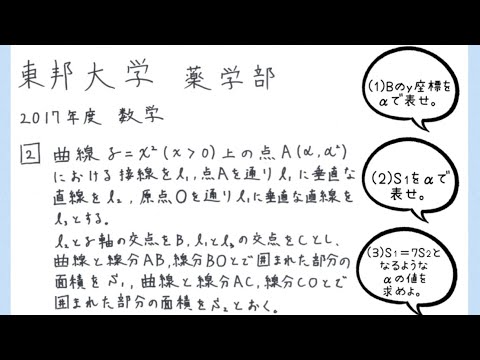 東邦大学 薬学部
2017年度 数学
2 曲線y=x²(x>0)上の点A(α,α²)
における接線をl₁,点Aを通りl₁に垂直な
直線をl₂,原点Oを通りl₁に垂直な直線を
l₃とする。
l₂とy軸の交点をB,l₁とl₃の交点をCとし,
曲線と線分AB,線分BOとで囲まれた部分の
面積をS₁,曲線と線分AC,線分COとで
囲まれた部分の面積をS₂とおく。
(1)Bのy座標を
αで表せ。
(2)S1をαで
表せ。
(3)S1=7S2と
なるような
αの値を
求めよ。